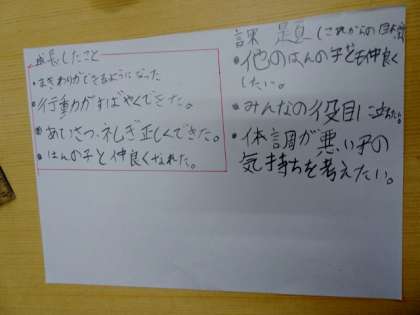 成長したこと
・まきわりができるようになった
・行動がすばやくできた。
・あいさつ、礼ぎ正しくできた。
・はんの子と仲良くなれた。
課題(これからの目標)
・他のはんの子とも仲良く
したい。
・みんなの役目に立ちたい。
・体調が悪い子の
気持ちを考えたい。